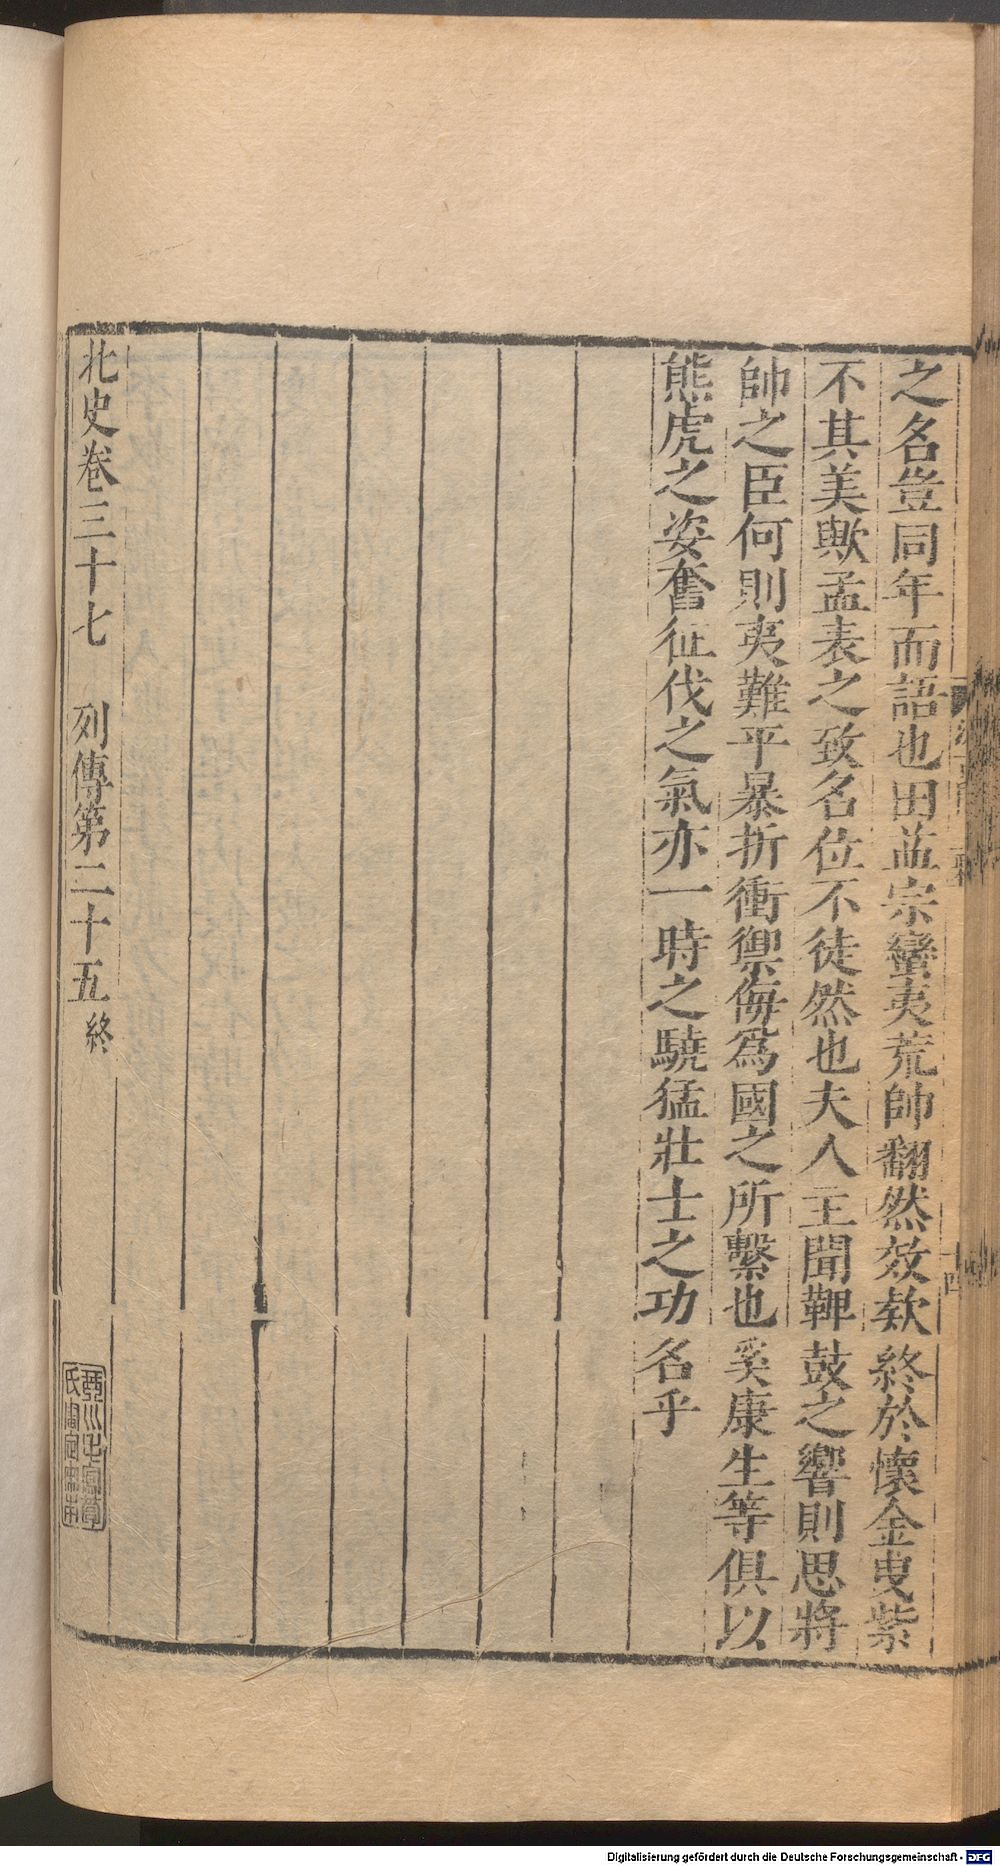 之名豈同年而語也田益宗蠻夷荒帥翻然效款終於懷金曳紫
不其美歟孟表之致名位不徒然也夫人主聞鞞鼓之響則思將
帥之臣何則夷難平暴折衝禦侮爲國之所繫也奚康生等俱以
熊虎之姿奮征伐之氣亦一時之驍猛壯士之功名乎
北史卷三十七 列傳第二十五終
Digitalisierung gefördert durch die Deutsche Forschungsgemeinschaft - DFG